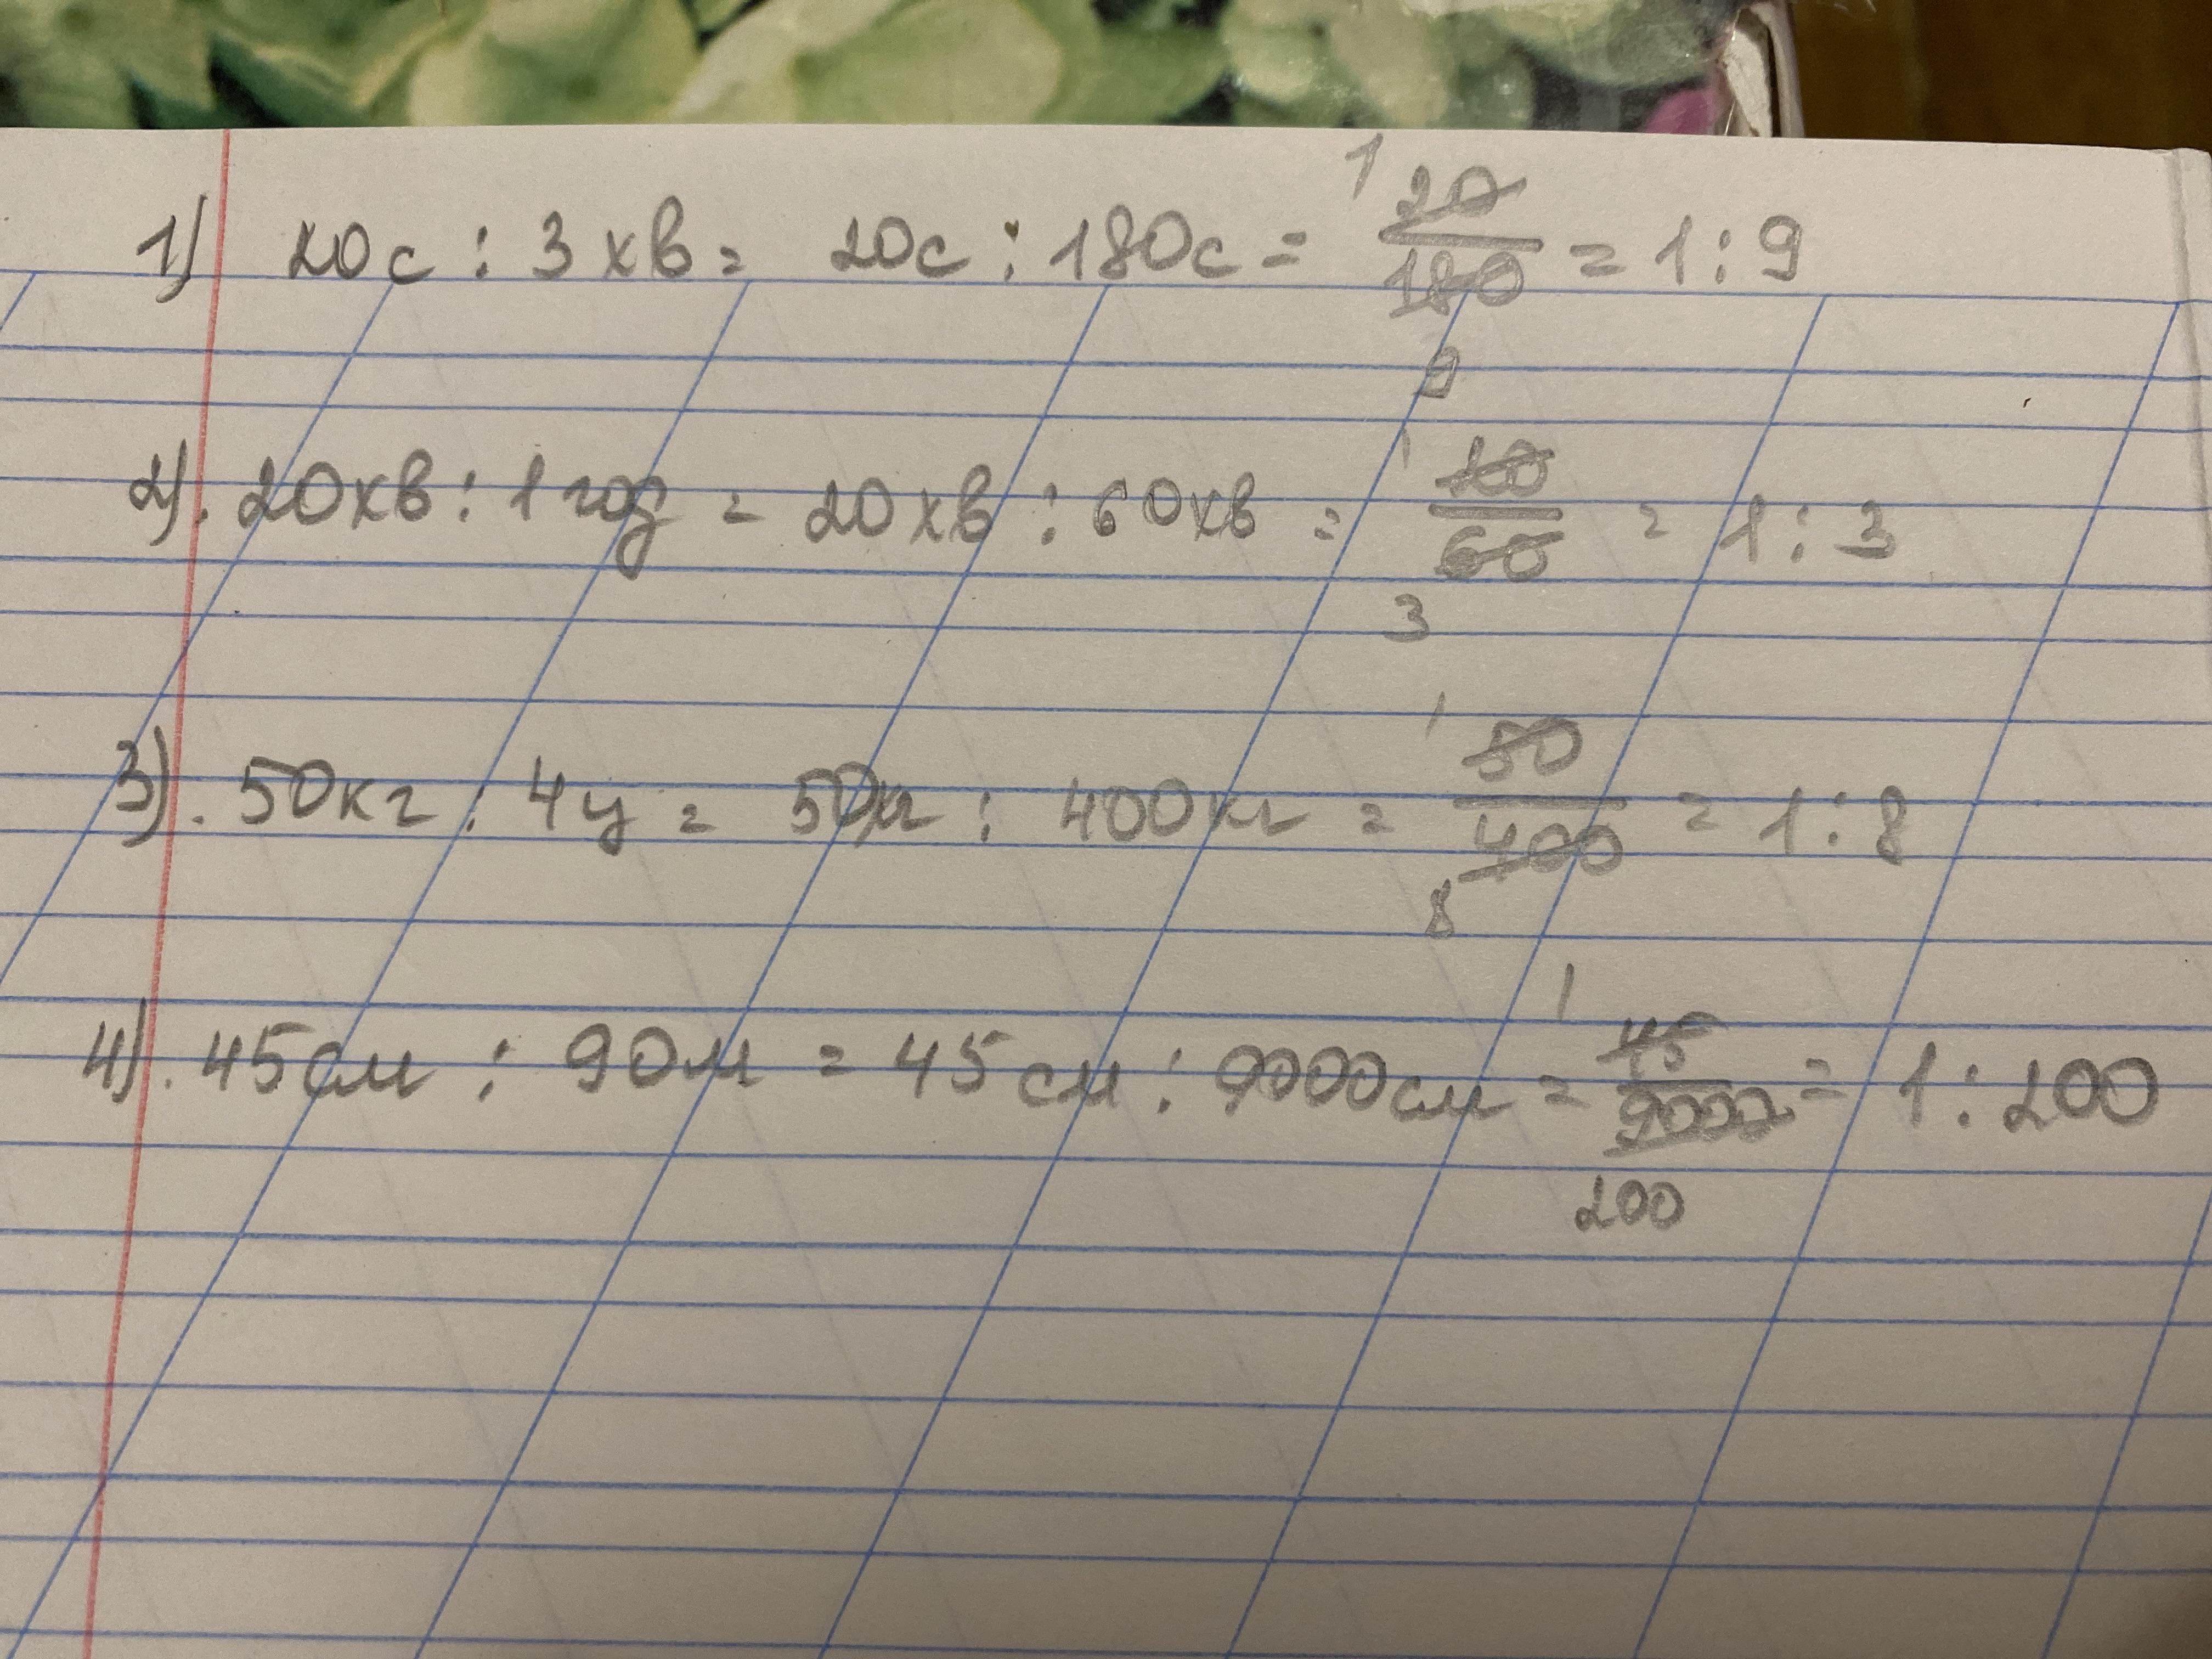 1) 20с : 3хв = 20с : 180с = 1 20/180 9 = 1 : 9
2). 20хв : 1год = 20хв : 60хв = 1 20/60 3 = 1 : 3
3). 50кг : 4ц = 50кг : 400кг = 1 50/400 8 = 1 : 8
4). 45см : 90м = 45см : 9000см = 1 45/9000 200 = 1 : 200